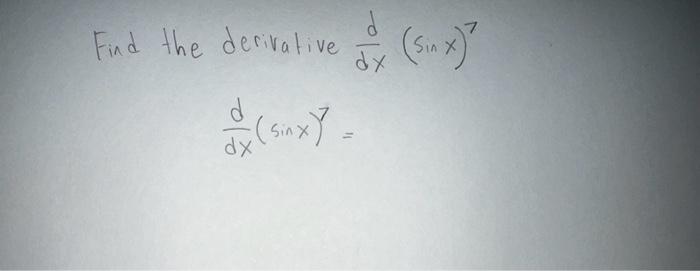 Find the derivative d/dx (sin x)^7
d/dx (sin x)^7 =